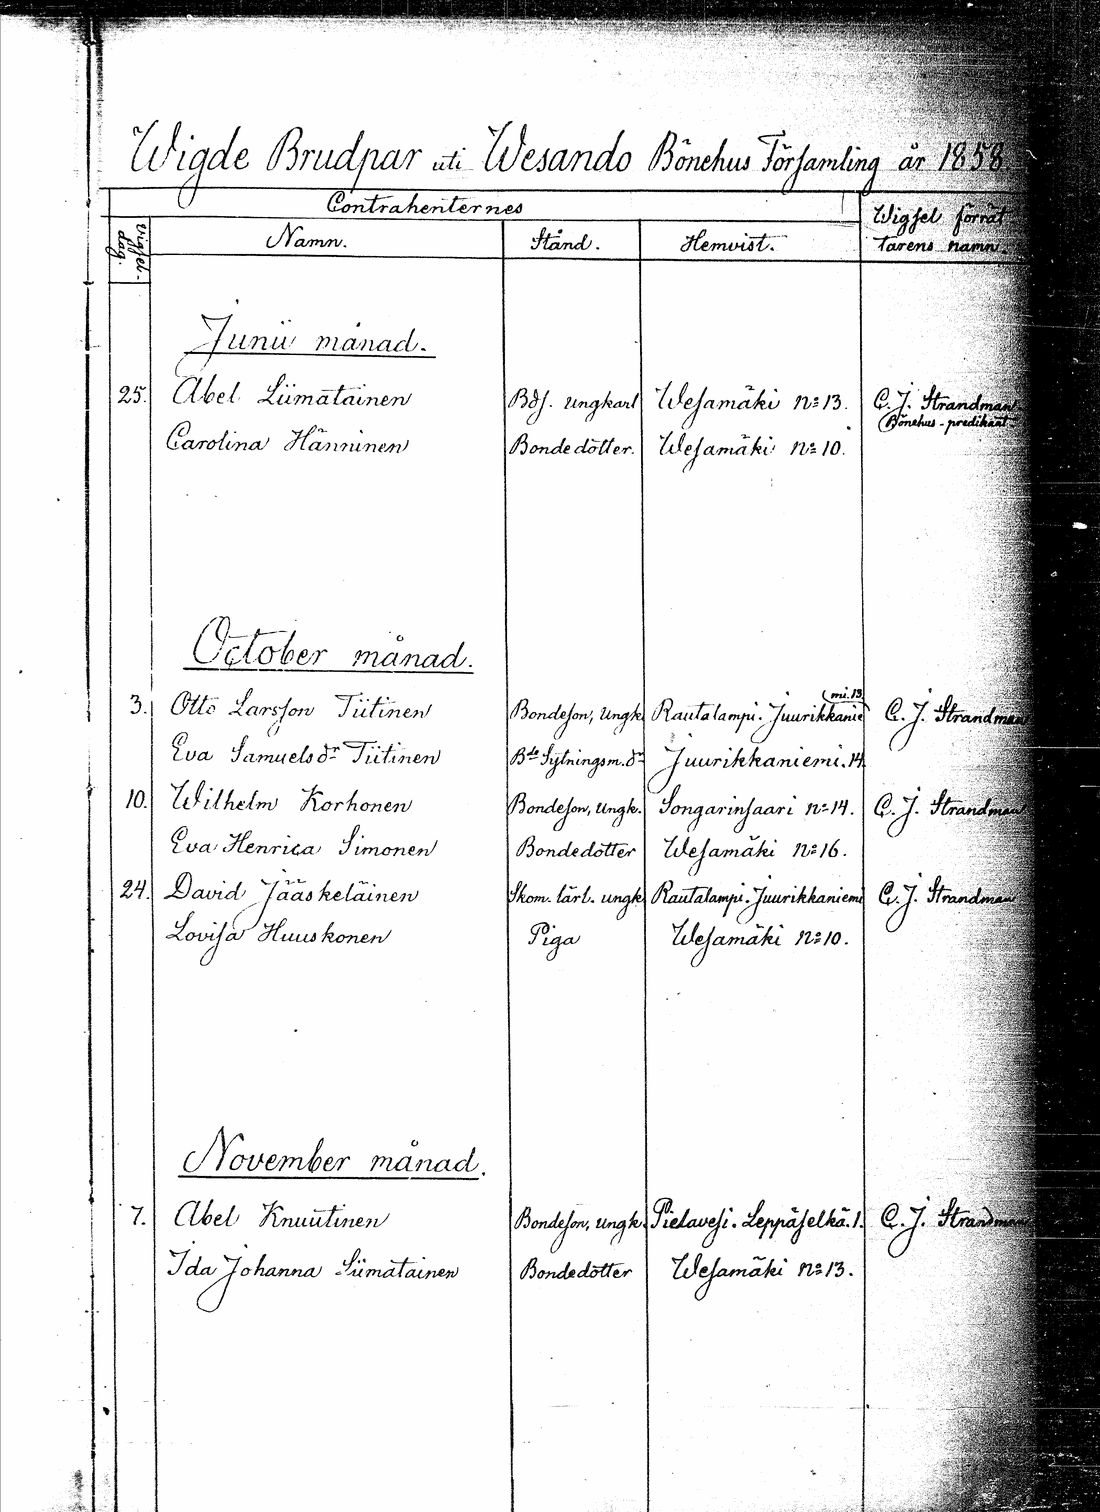 Wigde Brudpar uti Wesando Bönehus Församling år 1858.
Contrahenternes
Wigsel förrät
Wigsel-
dag.
Namn.
Stånd.
Hemvist.
tarens namn.
Junii månad.
25. Abel Liimatainen Bds. ungkarl Wesamäki no 13. C. J. Strandman
(Bönehus-predikant
Carolina Hänninen Bondedotter. Wesamäki no 10.
October månad.
(mi.13.
3. Otto Larsson Tiitinen Bondeson, Ungk. Rautalampi. Juurikkanie C. J. Strandman
Eva Samuelsdr Tiitinen Bde Sytningsm. dr Juurikkaniemi.14.
10. Wilhelm Korhonen Bondeson, Ungk. Songarinsaari no 14. C. J. Strandman
Eva Henrica Simonen Bondedotter Wesamäki no 16.
24. David Jääskeläinen Skom. lärl. ungk. Rautalampi. Juurikkaniemi C. J. Strandman
Lovisa Huuskonen Piga Wesamäki no 10.
November månad.
7. Abel Knuutinen Bondeson, ungk. Pielavesi. Leppäselkä.1. C. J. Strandman
Ida Johanna Liimatainen Bondedotter Wesamäki no 13.